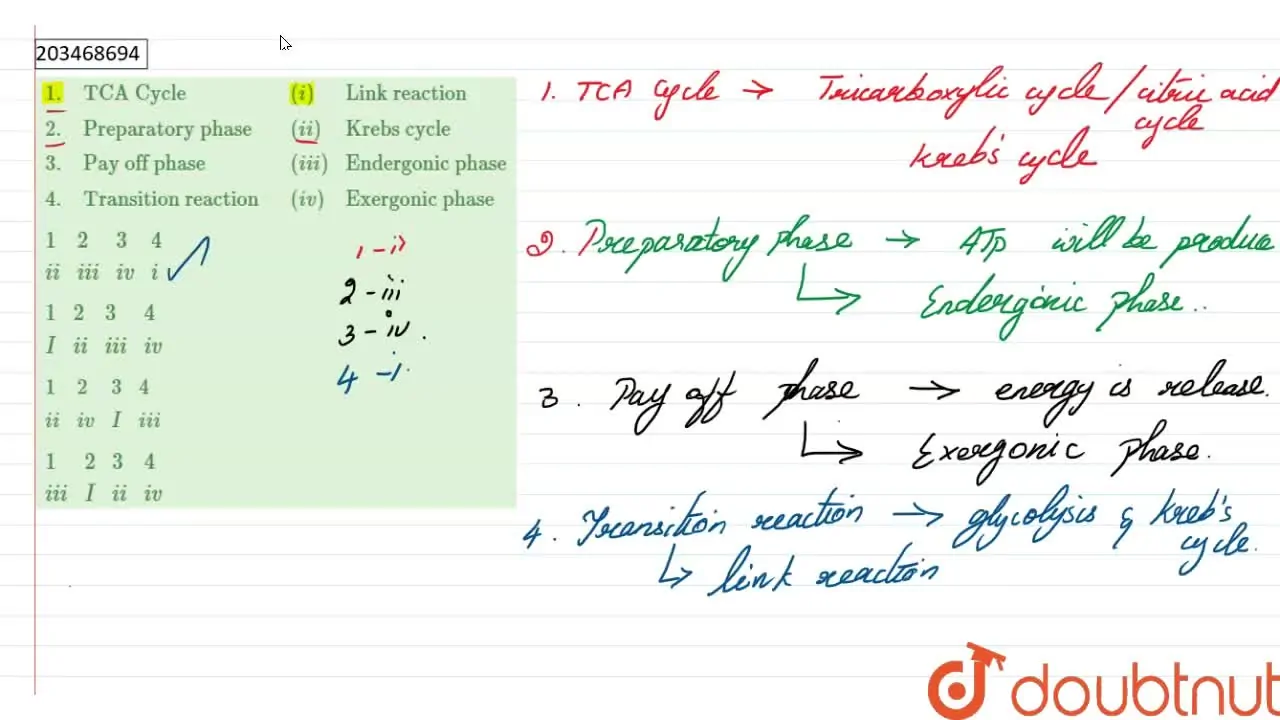 203468694
1. TCA Cycle (i) Link reaction
2. Preparatory phase (ii) Krebs cycle
3. Pay off phase (iii) Endergonic phase
4. Transition reaction (iv) Exergonic phase
1 2 3 4
ii iii iv i
1 2 3 4
I ii iii iv
1 2 3 4
ii iv I iii
1 2 3 4
iii I ii iv
1 - ii
2 - iii
3 - iv.
4 - i.
1. TCA Cycle → Tricarboxylic cycle / citric acid
cycle
Kreb's cycle
2. Preparatory phase → ATP will be produce
↳ Endergonic phase..
3. Pay off phase → energy is release.
↳ Exergonic phase.
4. Transition reaction → glycolysis & Kreb's
cycle.
↳ link reaction
doubtnut